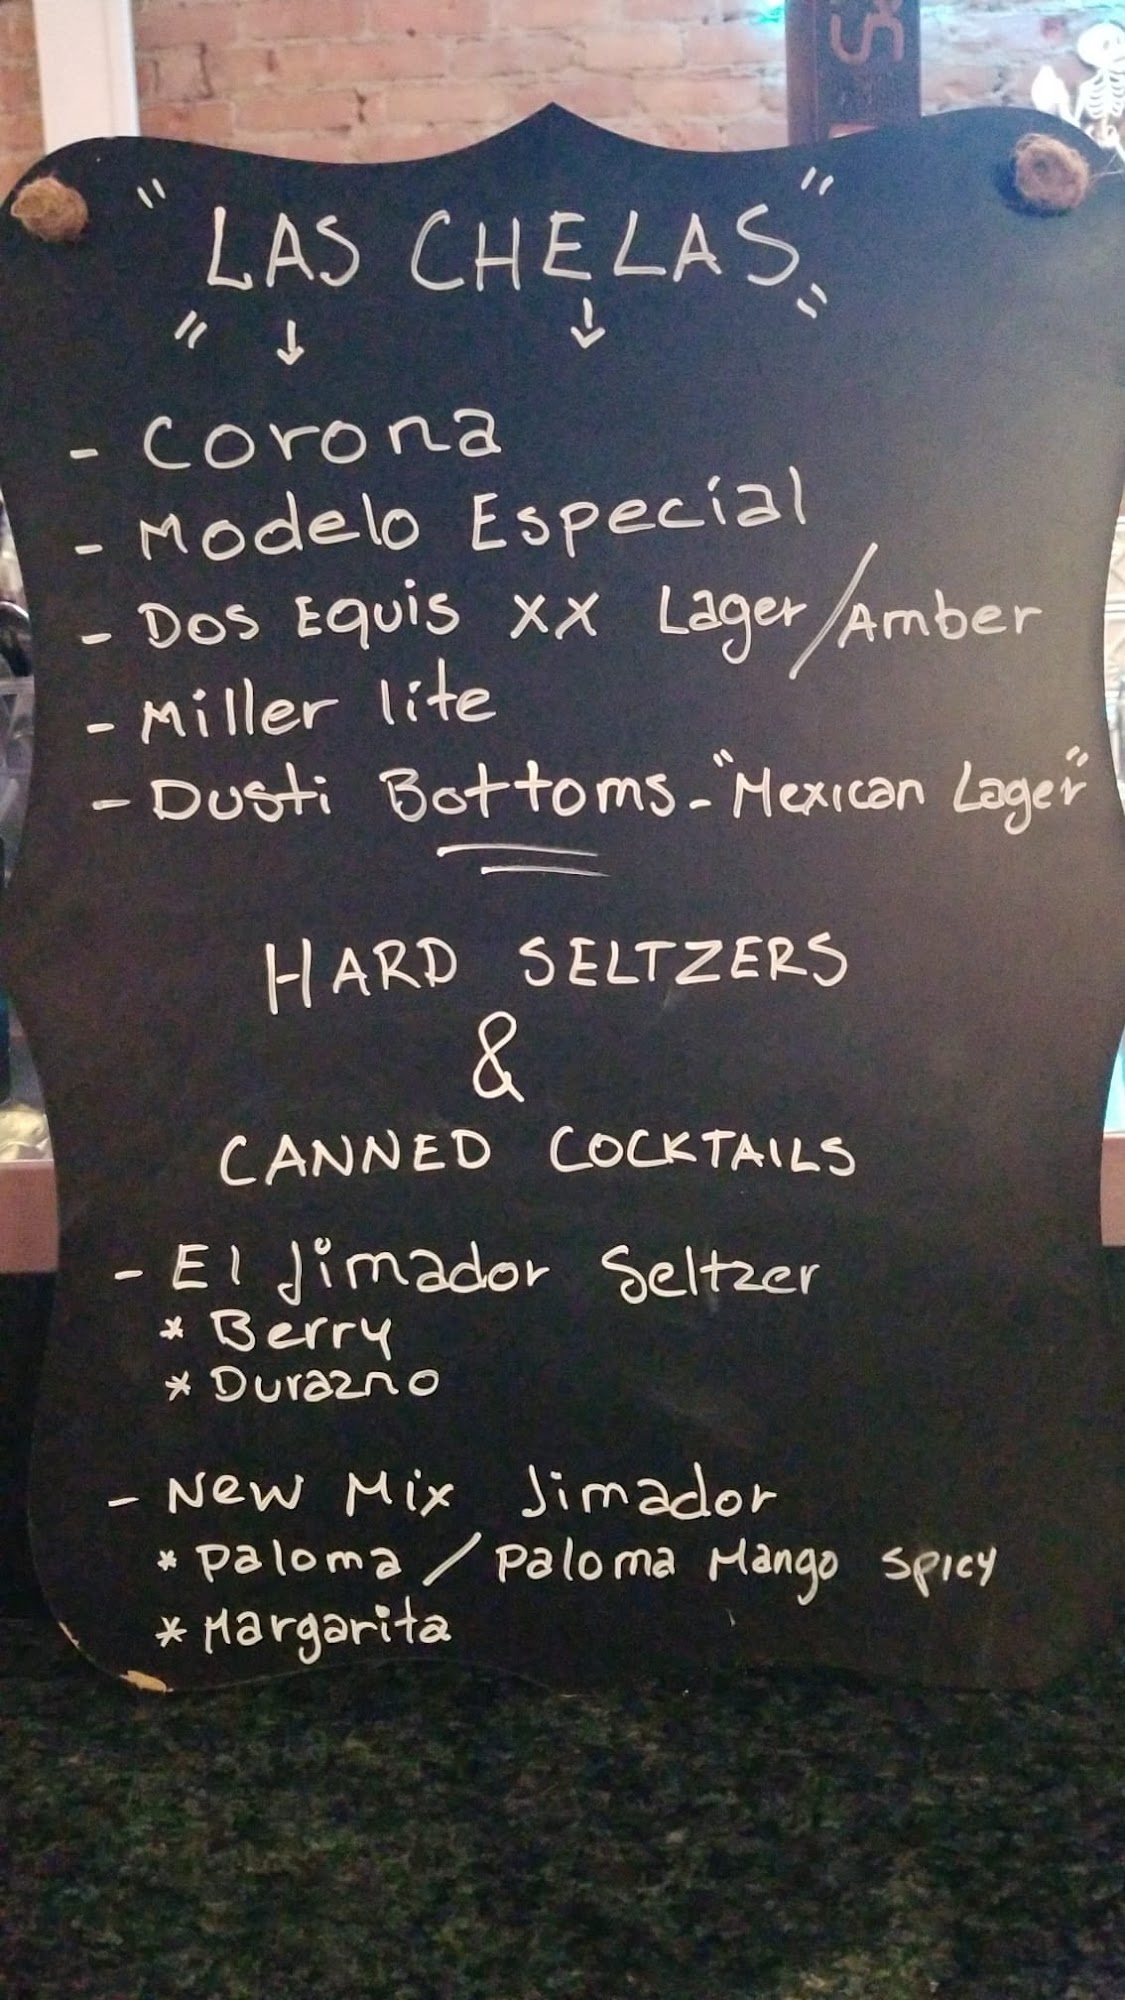 "LAS CHELAS"
- Corona
- Modelo Especial
- Dos Equis XX Lager/Amber
- Miller lite
- Dusti Bottoms - "Mexican Lager"
HARD SELTZERS
&
CANNED COCKTAILS
- El Jimador Seltzer
* Berry
* Durazno
- New Mix Jimador
* Paloma / Paloma Mango Spicy
* Margarita